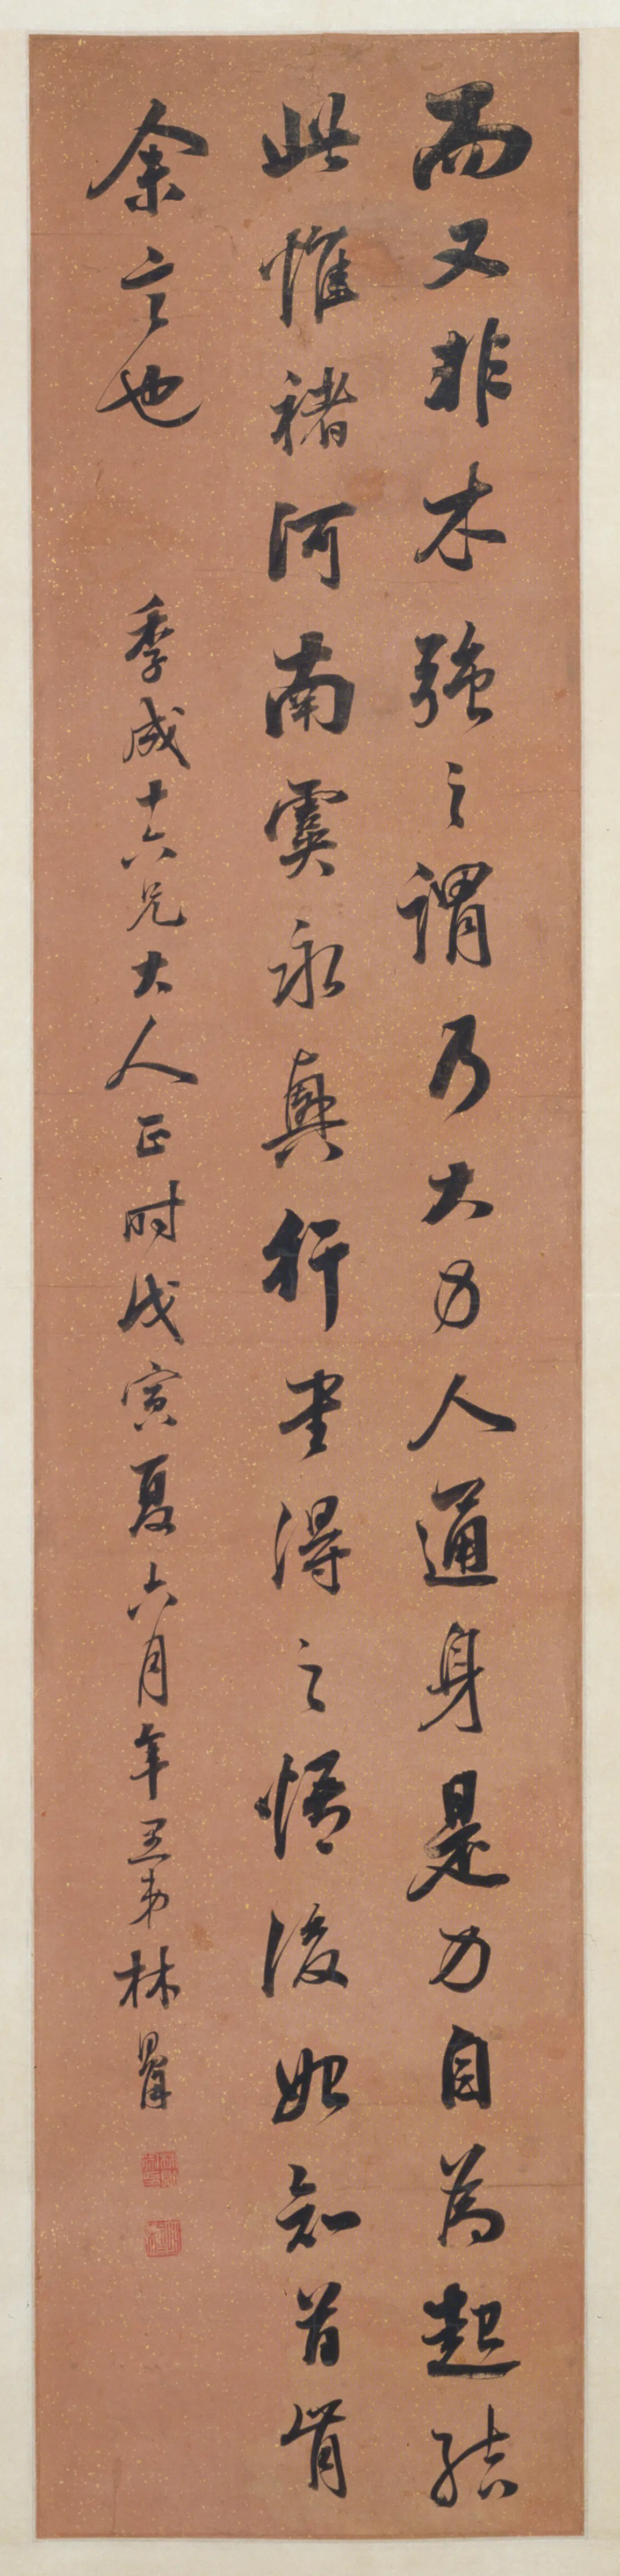 而又非木強之謂乃大力人通身是力自為起結
此惟褚河南虞永興行書得之悟後始知首肯
余言也 季成十六兄大人正時戊寅夏六月年愚弟林